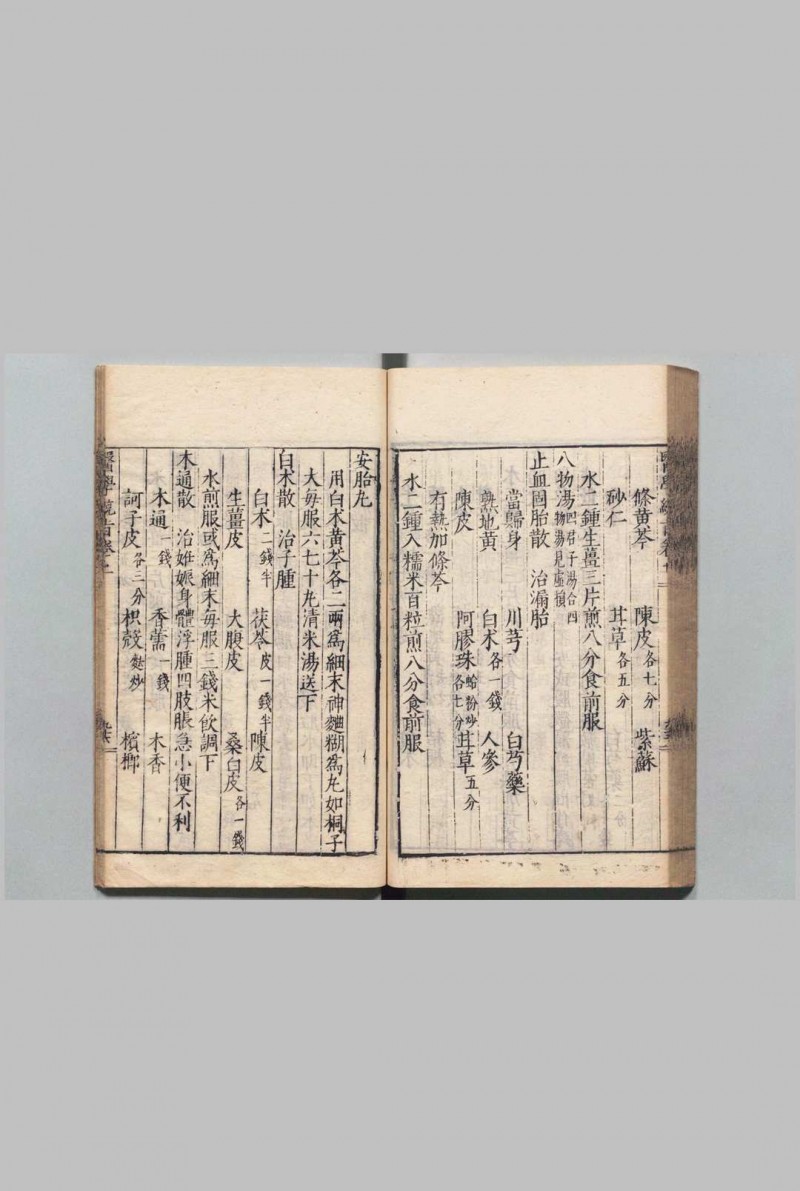 條黃芩 陳皮各七分 紫蘇
砂仁 甘草各五分
水二鍾生薑三片煎八分食前服
八物湯四君子湯合四物湯見虛損
止血固胎散 治漏胎
當歸身 川芎 白芍藥
熟地黃 白朮各一錢 人參
陳皮 阿膠珠蛤粉炒各七分 甘草五分
有熱加條芩
水二鍾入糯米百粒煎八分食前服
安胎丸
用白朮黃芩各二兩爲細末神麯糊爲丸如桐子
大每服六七十丸清米湯送下
白朮散 治子腫
白朮二錢半 茯苓皮一錢半 陳皮
生薑皮 大腹皮 桑白皮各一錢
水煎服或爲細末每服三錢米飲調下
木通散 治姙娠身體浮腫四肢脹急小便不利
木通一錢 香薷一錢 木香
訶子皮各三分 枳殼麩炒 檳榔
醫學